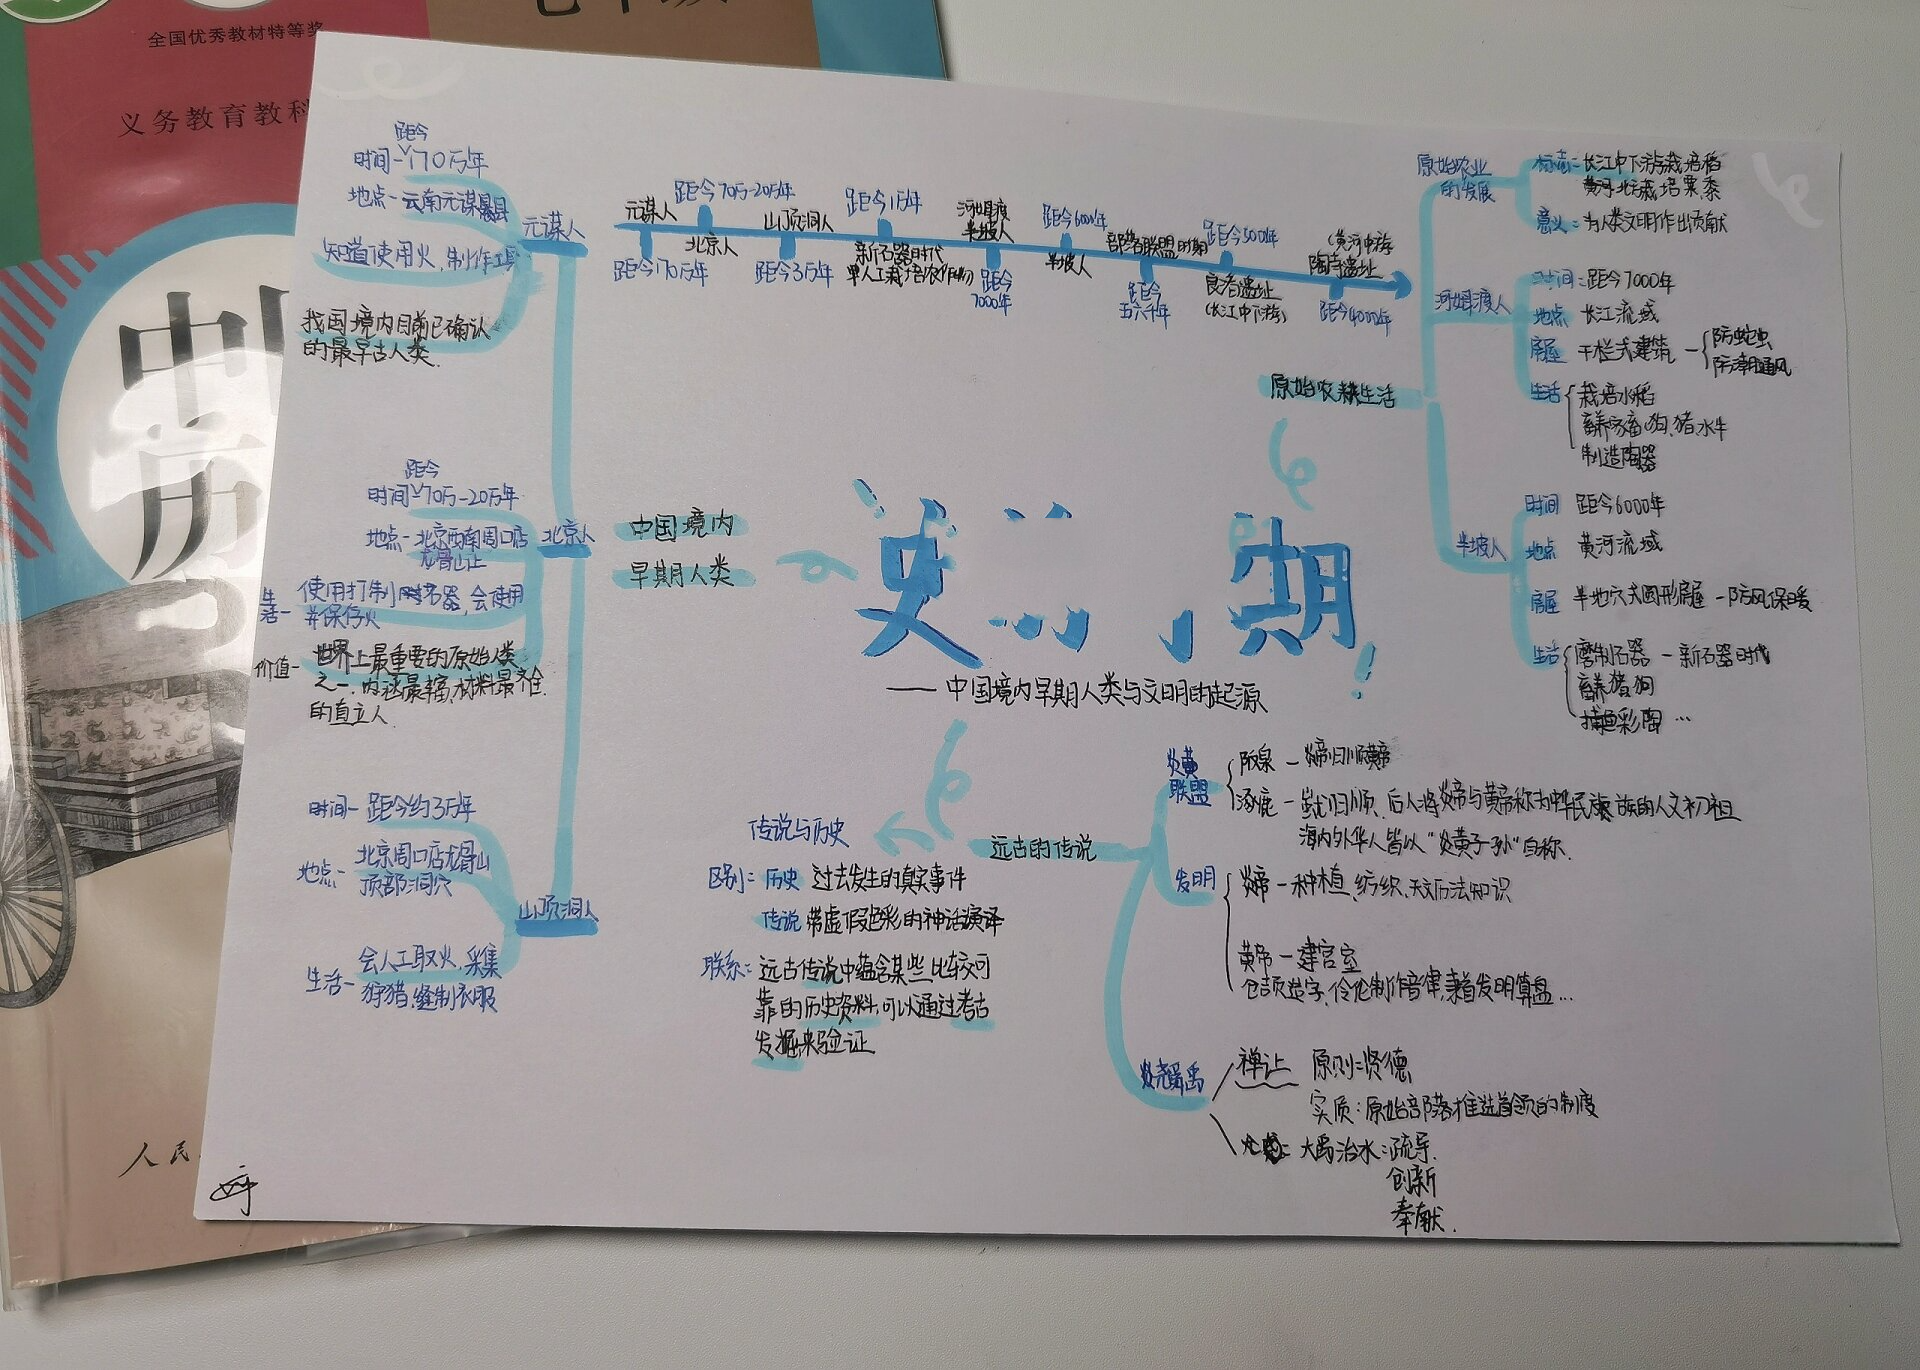 全国优秀教材特等奖
义务教育教科
中
历
人民
距今
时间-170万年
地点-云南元谋县
知道使用火,制作工具
我国境内目前已确认
的最早古人类.
元谋人
元谋人
距今70万-20万年
山顶洞人
距今1万年
河姆渡
半坡人
距今6000年
部落联盟时期
距今5000年
(黄河中游
陶寺遗址
距今170万年
北京人
距今3万年
新石器时代
单人工栽培农作物)
距今
7000年
半坡人
距今
五六千年
良渚遗址
(长江中下游)
距今4000年
原始农业
的发展
标志:长江中下游栽培稻
黄河北方栽培粟黍
意义:为人类文明作出贡献
原始农耕生活
河姆渡人
时间:距今7000年
地点 长江流域
房屋 干栏式建筑-
防蛇虫
防潮通风
生活
栽培水稻
畜养家畜:狗、猪、水牛
制造陶器
半坡人
时间 距今6000年
地点 黄河流域
房屋 半地穴式圆形房屋-防风保暖
生活
磨制石器-新石器时代
畜养猪狗
捕鱼彩陶…
距今
时间-70万-20万年
地点-北京西南周口店
龙骨山
北京人
生活-
使用打制石器,会使用
并保存火
价值-
世界上最重要的原始人类
之一,内涵最丰富,材料最齐全
的直立人.
中国境内
早期人类
史前时期!
——中国境内早期人类与文明的起源
时间-距今约3万年
地点-
北京周口店龙骨山
顶部洞穴
山顶洞人
生活-
会人工取火、采集
狩猎、缝制衣服
远古的传说
传说与历史
区别:历史 过去发生的真实事件
传说 带虚假色彩的神话演绎
联系:远古传说中蕴含某些比较可
靠的历史资料,可以通过考古
发掘来验证
炎黄
联盟
阪泉-炎帝归顺黄帝
涿鹿-蚩尤归顺、后人将炎帝与黄帝称为中华民族族的人文初祖
海内外华人皆以“炎黄子孙”自称.
发明
炎帝-种植、纺织、天文历法知识
黄帝-建宫室
仓颉造字、伶伦制作音律,隶首发明算盘…
尧舜禹
禅让 原则:贤德
实质:原始部落推选首领的制度
大禹治水:疏导.
创新
奉献.